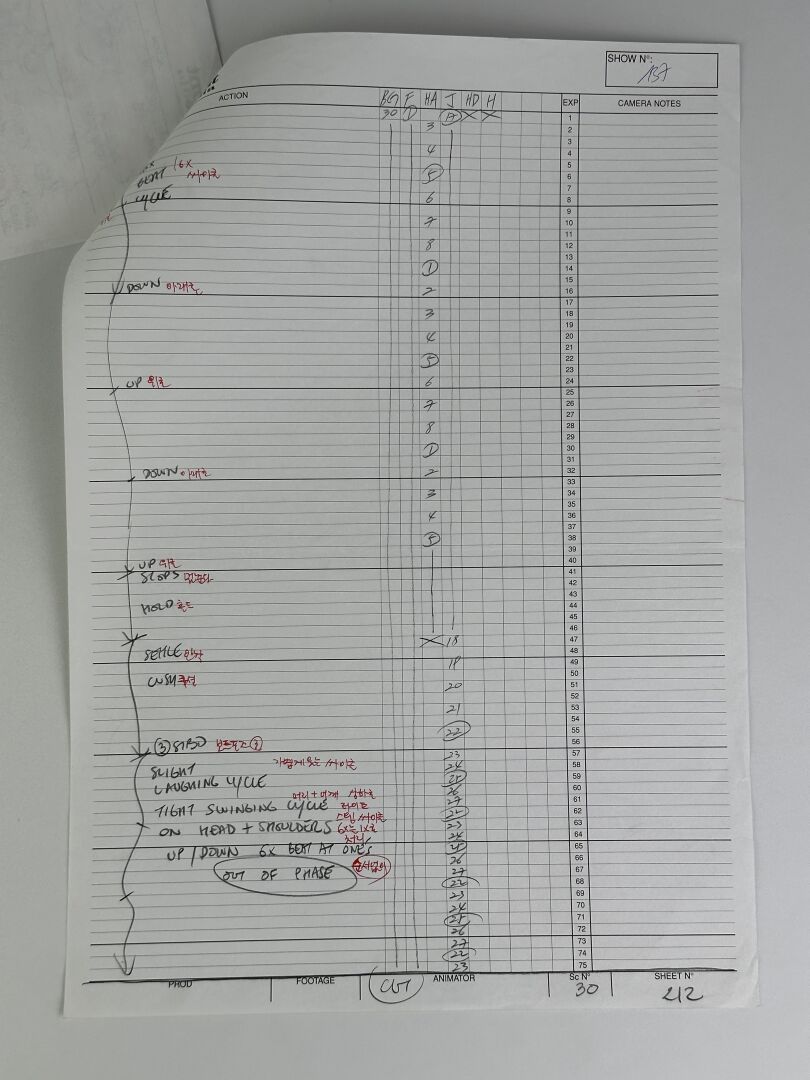 SHOW N°:
137
ACTION
BG F HA J HD H
EXP
CAMERA NOTES
30 D A X X 1
3 2
3
4 4
BEAT 16X 5
싸이클 5 6
CYCLE 7
6 8
9
7 10
11
8 12
13
D 14
DOWN 아래로 15
2 16
17
3 18
19
4 20
21
5 22
23
UP 위로 6 24
25
7 26
27
8 28
29
D 30
31
DOWN 아래로 2 32
33
3 34
35
4 36
37
5 38
39
UP 위로 40
STOPS 멈춘다 41
42
43
HOLD 홀드 44
45
46
X 18 47
SETTLE 안착 48
19 49
50
CUSH 쿠션 20 51
52
21 53
54
22 55
③ STBD 보드포즈 ③ 56
23 57
SLIGHT 가볍게 웃는 싸이클 24 58
LAUGHING CYCLE 25 59
머리+어깨 상하로 26 60
TIGHT SWINGING CYCLE 타이트 27 61
스윙 싸이클 22 62
ON HEAD + SHOULDERS 6X는 1X로 23 63
처리 24 64
UP / DOWN 6X BEAT AT ONES 25 65
26 66
OUT OF PHASE 순서없이 27 67
22 68
23 69
24 70
25 71
26 72
27 73
22 74
23 75
PROD
FOOTAGE
ANIMATOR
Sc N°
30
SHEET N°
2/2